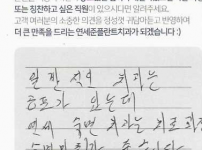 또는 칭찬하고 싶은 직원이 있으시다면 알려주세요.
고객 여러분의 소중한 의견을 정성껏 귀담아듣고 반영하여
더 큰 만족을 드리는 연세준플란트치과가 되겠습니다 :)
일반적인 치과는
공포가 있는데
연세 숙면 치과는 치료과정